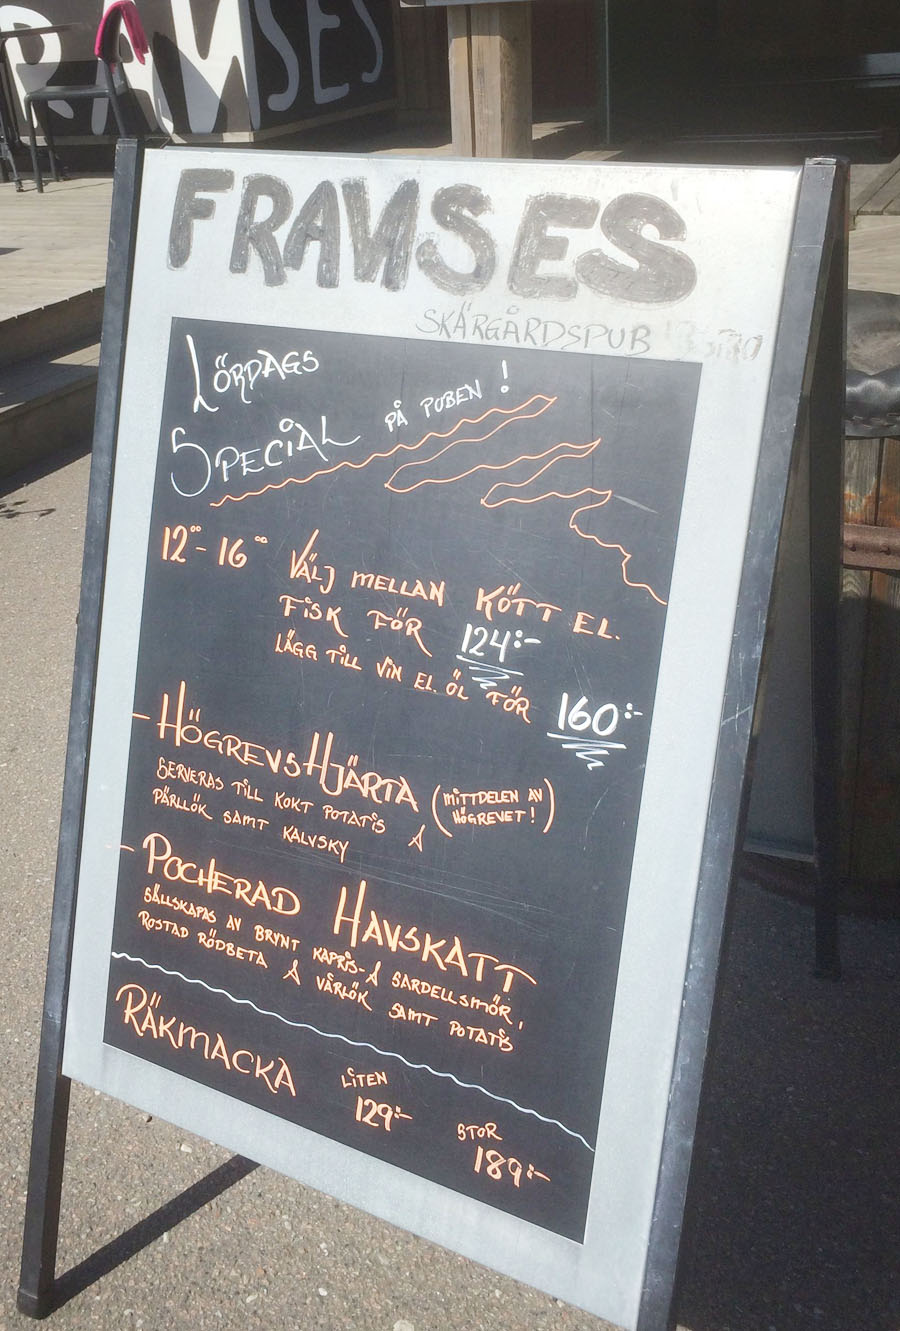 RAMSES
FRAMSES
SKÄRGÅRDSPUB
LÖRDAGS
SPECIAL PÅ PUBEN!
12⁰⁰-16⁰⁰ VÄLJ MELLAN KÖTT EL.
FISK FÖR 124:-
LÄGG TILL VIN EL. ÖL FÖR 160:-
- HÖGREVSHJÄRTA (MITTDELEN AV
HÖGREVET!)
SERVERAS TILL KOKT POTATIS &
PÄRLLÖK SAMT KALVSKY
- POCHERAD HAVSKATT
SÄLLSKAPAS AV BRYNT KAPRIS- & SARDELLSMÖR,
ROSTAD RÖDBETA & VÅRLÖK SAMT POTATIS
RÄKMACKA LITEN
129:-
STOR
189:-